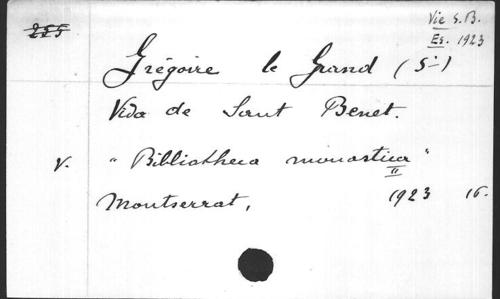 255
Vie S.B.
Es. 1923
Grégoire le Grand (St)
Vida de Sant Benet.
V. "Bibliotheca monastica"
II
Montserrat, 1923 16.